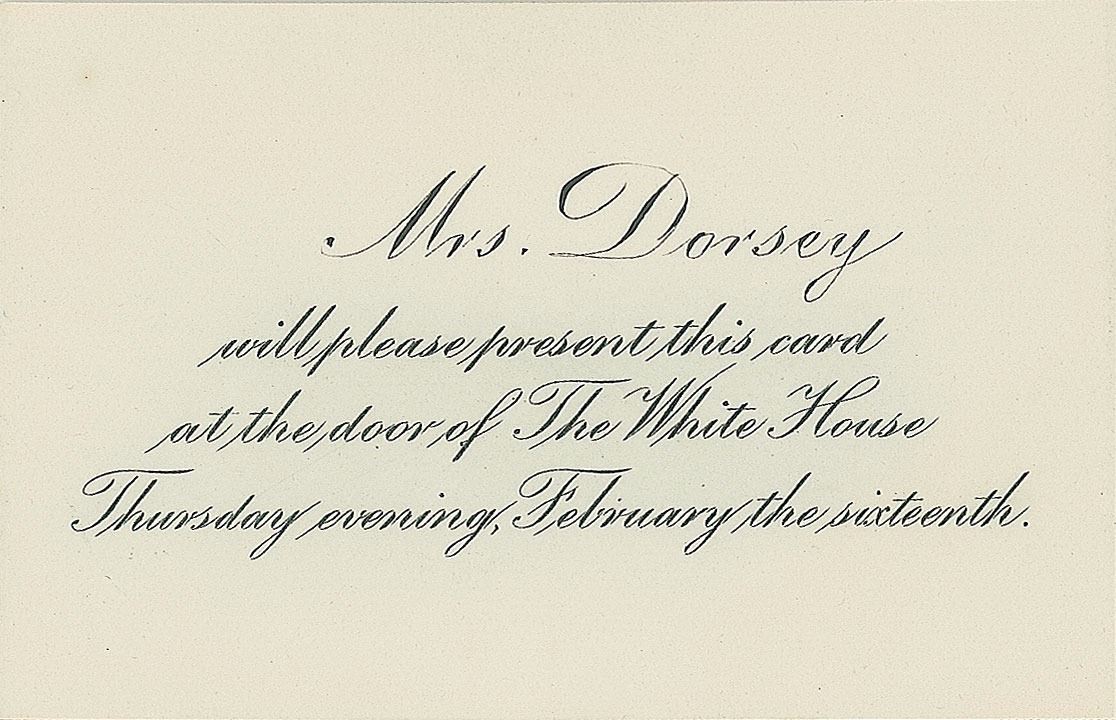 Mrs. Dorsey
will please present this card
at the door of The White House
Thursday evening, February the sixteenth.